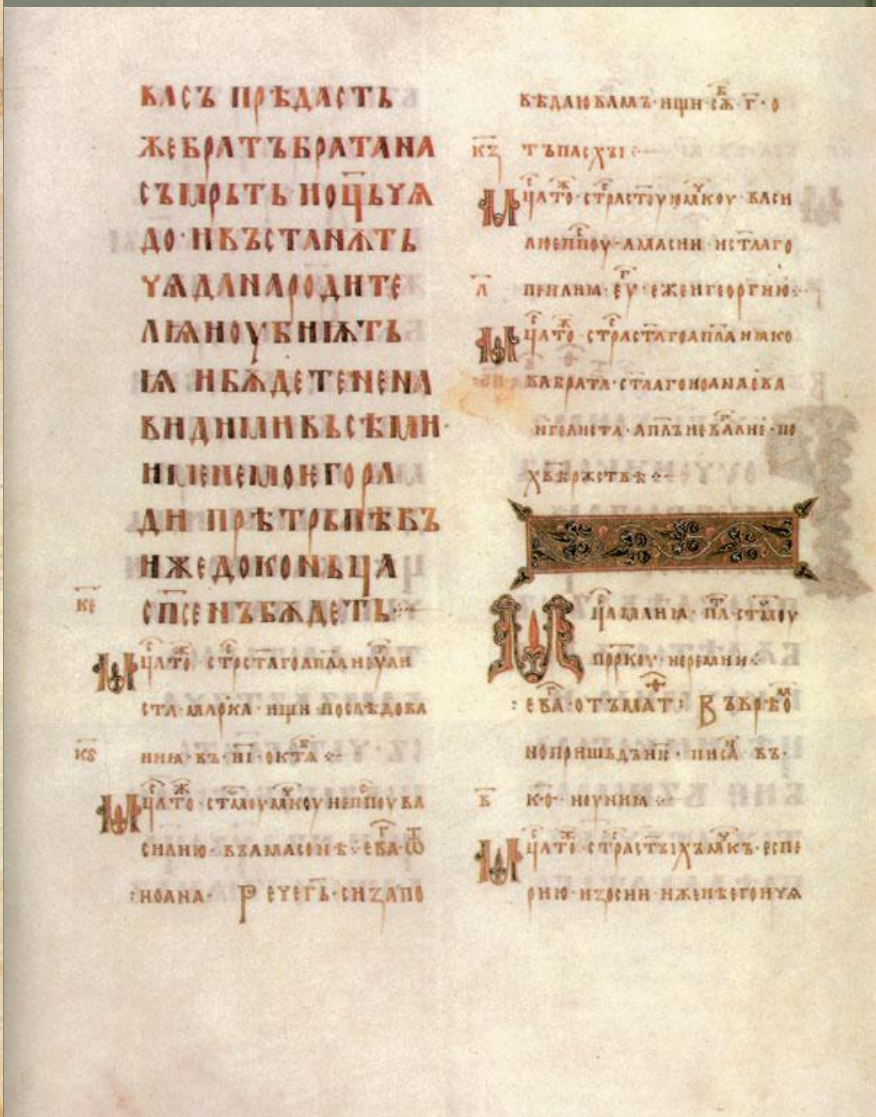 ВАСЪ ПРѢДАСТЬ
ЖЕ БРАТЪ БРАТА НА
СЪМРЬТЬ И ОЦ҃Ь ЧѦ
ДО · И ВЪСТАНѪТЬ
ЧѦДА НА РОДИТЕ
ЛѨ И ОУБИѬТЬ
Ѩ И БѪДЕТЕ НЕНА
ВИДИМИ ВЬСѢМИ ·
ИМЕНЕ МОѤГО РА
ДИ ПРѢТРЬПѢВЪ
И ЖЕ ДО КОНЬЦА
СП҃СЕНЪ БѪДЕТЬ
к҃е
М
ЦА ТОⷤ СТРⷭ СТАГО АПЛА И ЕУАН
СТА МАРКА · ИЩИ ПОСЛѢДОВА
к҃ѕ
НИꙖ · ВЪ · Н҃І · ОКТѦ
М
ЦА ТОⷤ СТМОУ МКОУ И ЕППОУ ВА
СИЛИЮ · ВЪ АМАСОНѢ · ЕВАⷢ ѿ
ИОАНА · РЕЧЕ ГЬ · СИ ЗАПО
ВѢДАЮ ВАМЪ · ИЩИ СѪⷠ · Г҃ · О
к҃з
ТЪ ПАСХЫ
М
ЦА ТОⷤ СТРАСТ МКОУ ВАСИ
ЛЮ ЕППОУ · АМАСИИ · И СТАГО
л҃
ПЕНИꙖ · ЕУⷢ ЕЖЕ И ГЕОРГИЮ
М
ЦА ТОⷤ СТРАСТАГО АПЛА ИꙖКО
ВА БРАТА · СТААГО ИОАНА ЕВА
НГЛИСТА · АПЛЪ НЕВАЛНЕ · ПО
ХВѢ РЖСТВѢ
М
ЦА МАИꙖ · П҃Л · СТМОУ
ПОРКОУ ИЕРЕМИИ
ЕВАⷢ · ОТЪ МАТⷴ · ВЪ ВРѢⷨО
НО ПРИШЬДЪ Н҃К · ПИСАⷩ ВЪ ·
в҃
К҃Ѳ · ИОУНИꙖ
М
ЦА ТОⷤ СТРАСТЫХЪ МКЪ · ЕСПЕ
РИЮ · И ЗОСИИ · И ЖЕНѢ ЕГО И ЧѦ